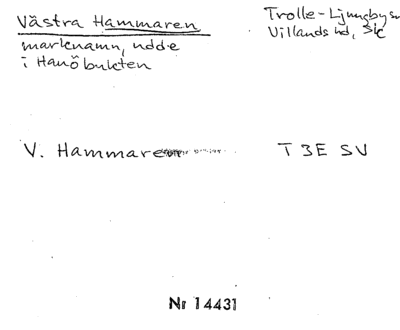 Västra Hammaren
marknamn, udde
i Hanöbukten
Trolle-Ljungby sn
Villands hd, Sk
V. Hammaren
T 3E SV
Nr 14431